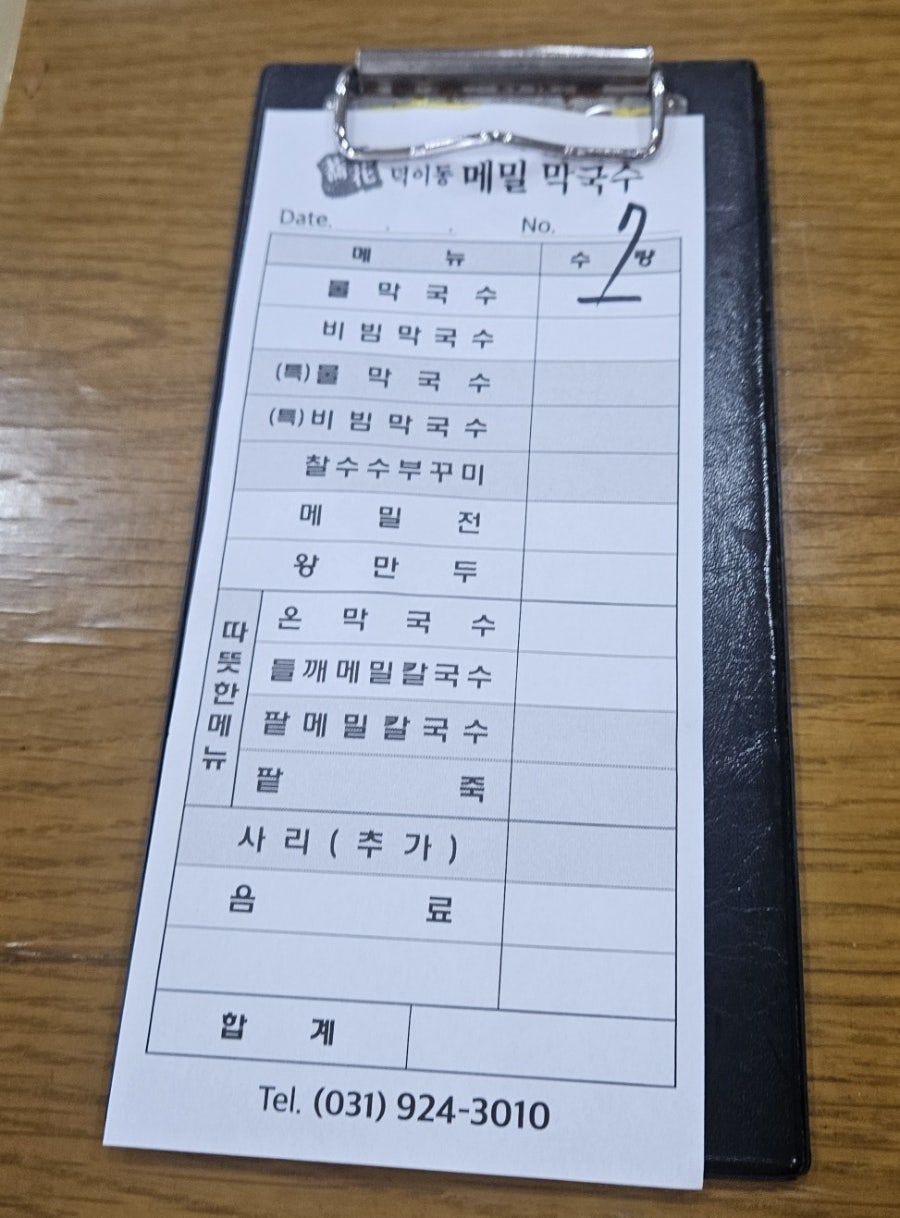 덕이동 메밀 막국수
Date. . . No.
7
메 뉴 수 량
물 막 국 수
비 빔 막 국 수
(특) 물 막 국 수
(특) 비 빔 막 국 수
찰수수부꾸미
메 밀 전
왕 만 두
따뜻한메뉴
온 막 국 수
들깨메밀칼국수
팥 메 밀 칼 국 수
팥 죽
사 리 ( 추 가 )
음 료
합 계
Tel. (031) 924-3010